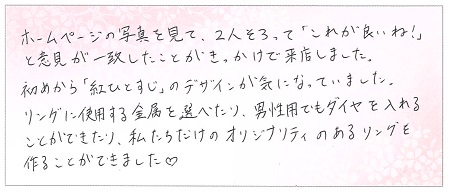 ホームページの写真を見て、2人そろって「これが良いね!」
と意見が一致したことがきっかけで来店しました。
初めから「紅ひとすじ」のデザインが気になっていました。
リングに使用する金属を選べたり、男性用でもダイヤを入れる
ことができたり、私たちだけのオリジナリティのあるリングを
作ることができました♡